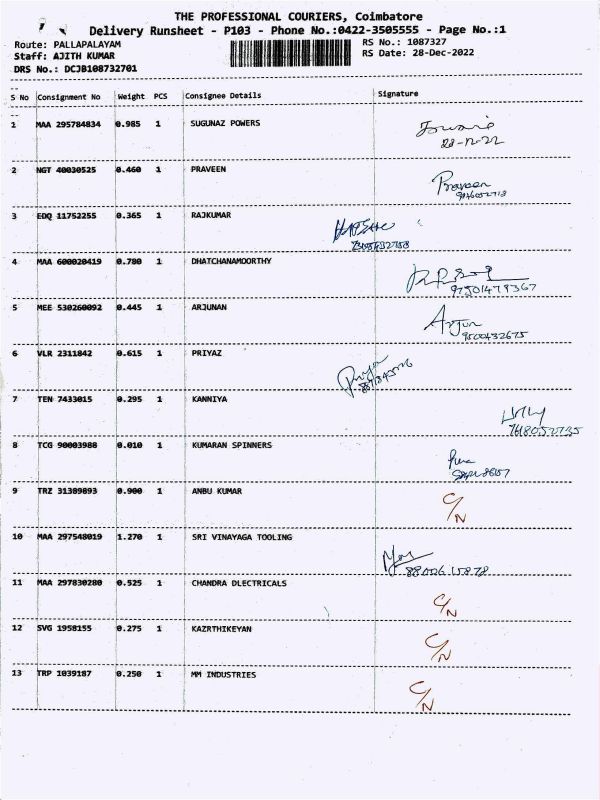 THE PROFESSIONAL COURIERS, Coimbatore
Delivery Runsheet - P103 - Phone No.:0422-3505555 - Page No.:1
Route: PALLAPALAYAM RS No.: 1087327
Staff: AJITH KUMAR RS Date: 28-Dec-2022
DRS No.: DCJB108732701
S No Consignment No Weight PCS Consignee Details Signature
1 MAA 295784834 0.985 1 SUGUNAZ POWERS
28-12-22
2 NGT 40030525 0.460 1 PRAVEEN Praveen
3 EDQ 11752255 0.365 1 RAJKUMAR
4 MAA 600020419 0.780 1 DHATCHANAMOORTHY
97501479367
5 MEE 530260092 0.445 1 ARJUNAN Arjun
9500432675
6 VLR 2311842 0.615 1 PRIYAZ Priya
7 TEN 7433015 0.295 1 KANNIYA
8 TCG 90003988 0.010 1 KUMARAN SPINNERS
9 TRZ 31389893 0.900 1 ANBU KUMAR C/N
10 MAA 297548019 1.270 1 SRI VINAYAGA TOOLING
11 MAA 297830280 0.525 1 CHANDRA DLECTRICALS C/N
12 SVG 1958155 0.275 1 KAZRTHIKEYAN C/N
13 TRP 1039187 0.250 1 MM INDUSTRIES C/N